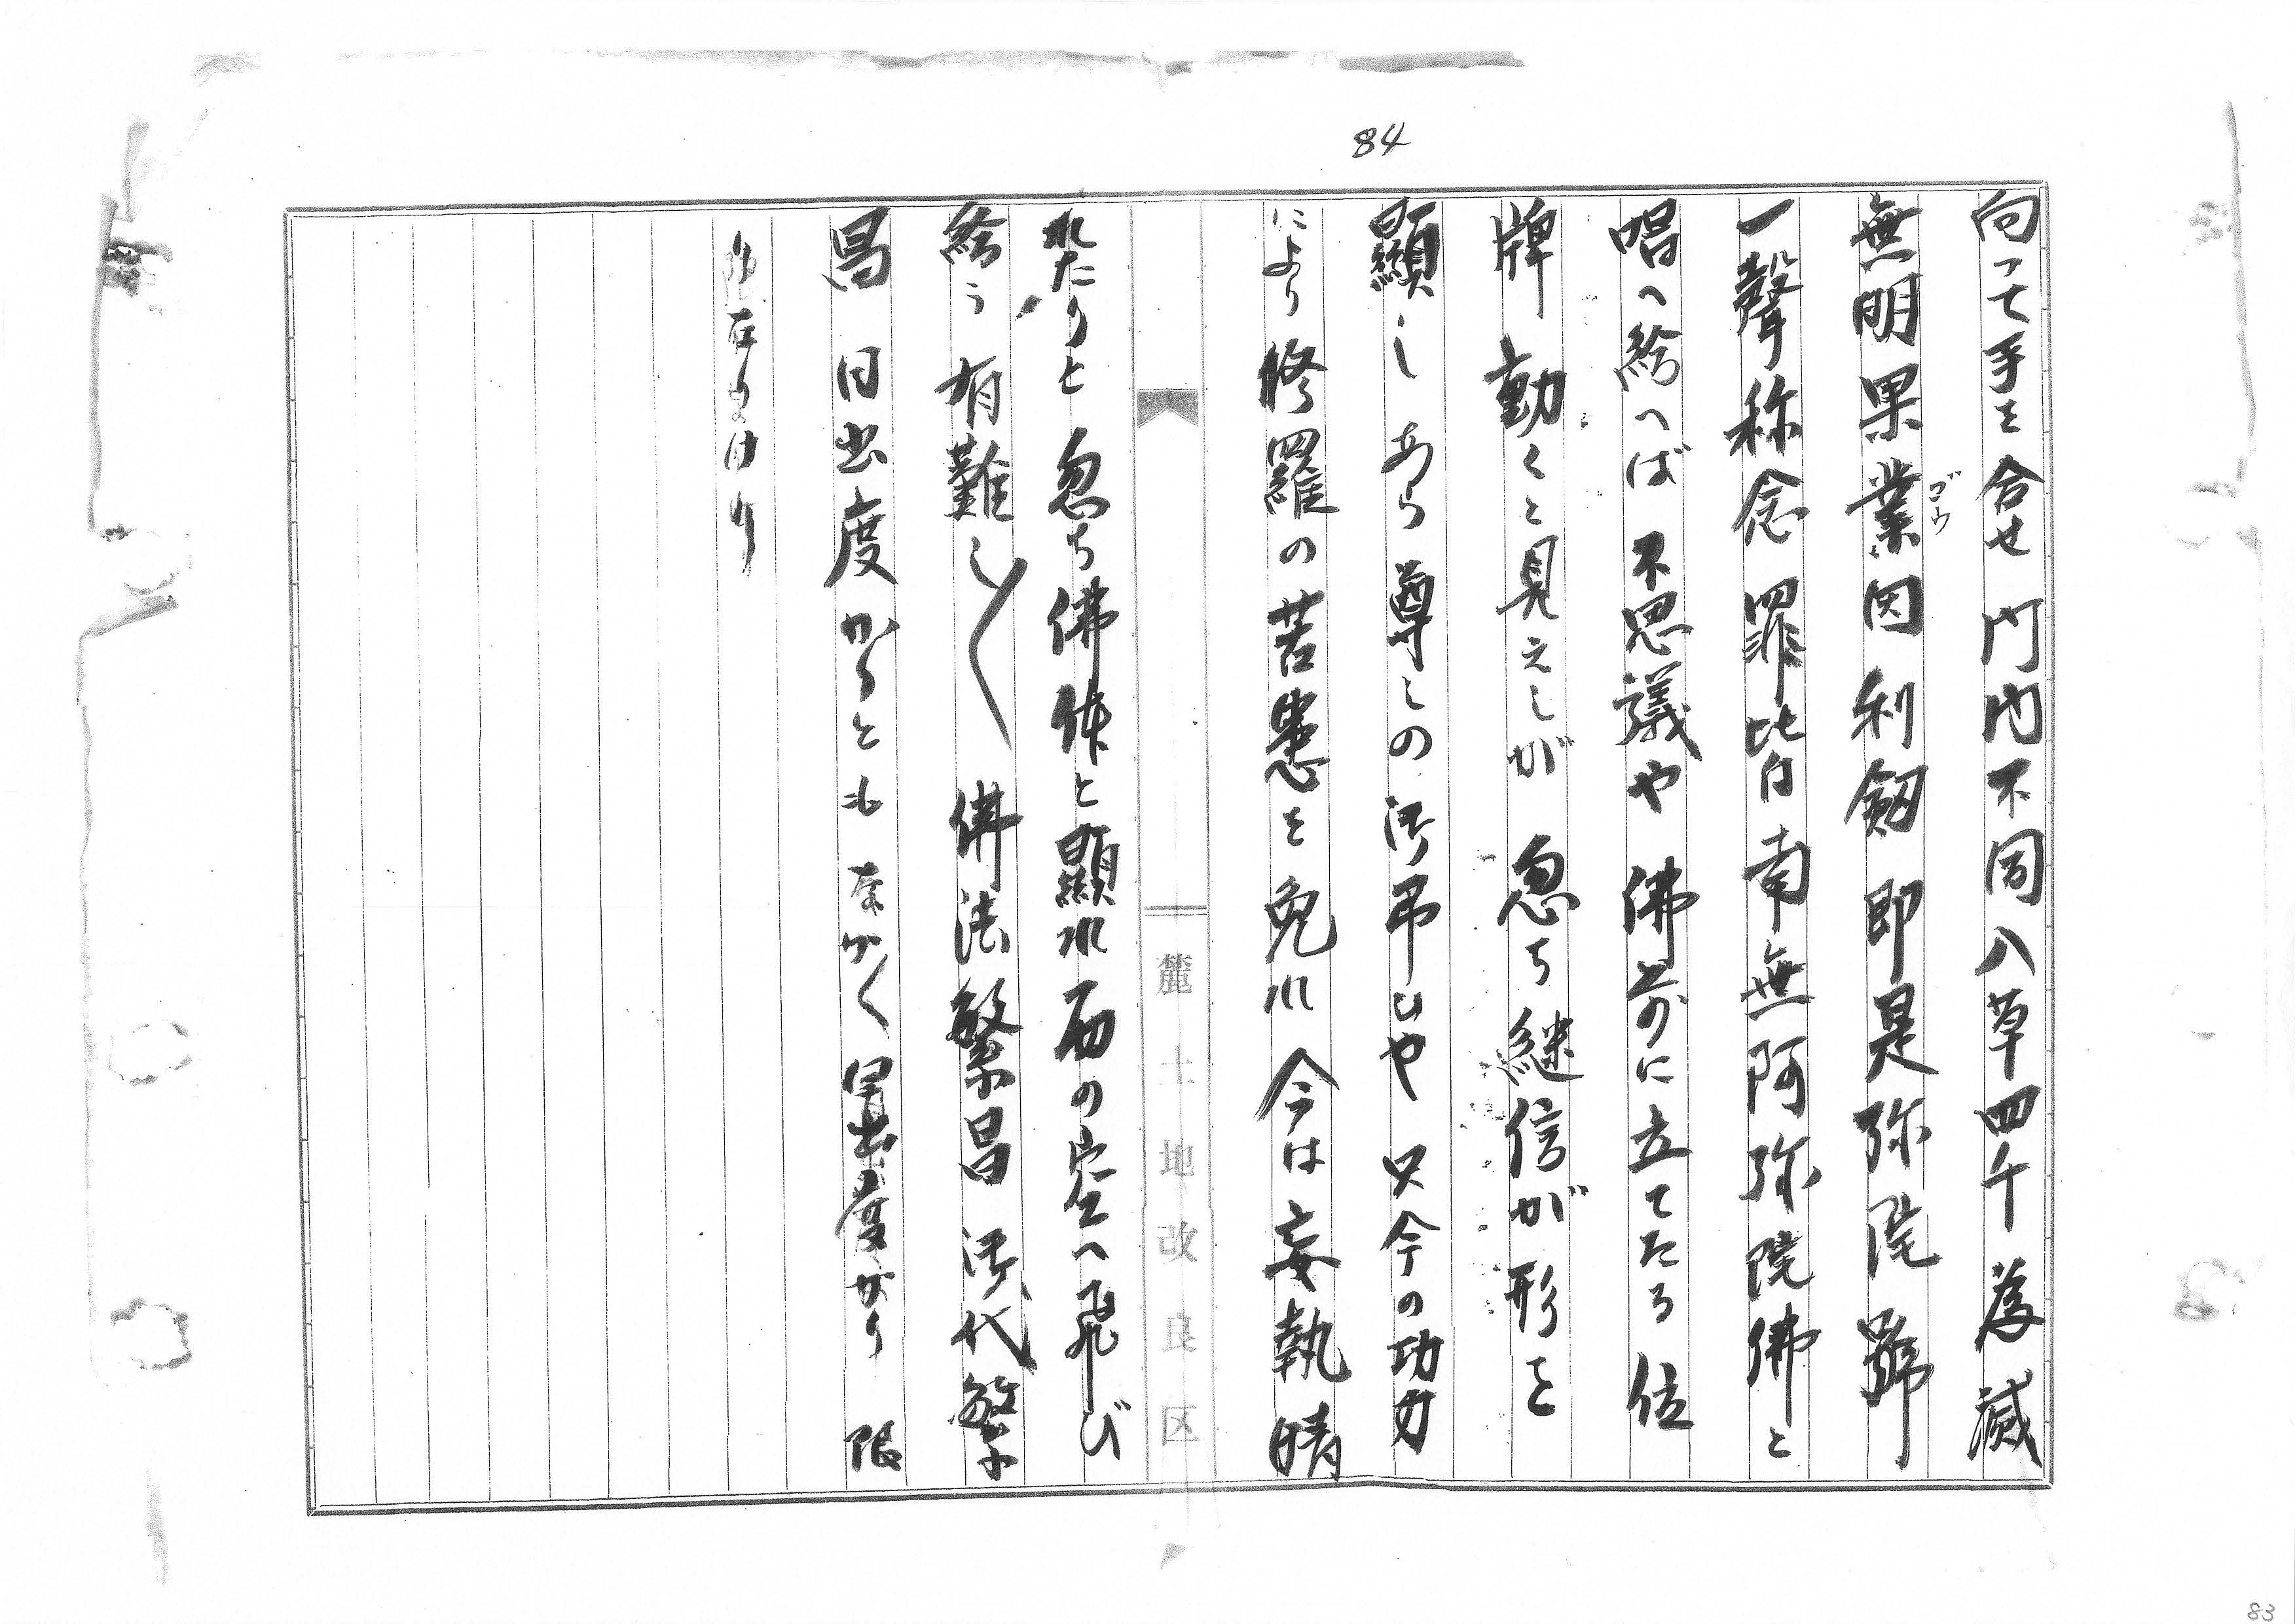 84
向って手を合せ 門内不同八万四千 為滅
無明果業因利劔 即是弥陀號
ゴウ
一聲称念罪皆 南無阿弥陀佛と
唱へ給へば 不思議や 佛前に立てたる 位
牌 動くと見えしが 忽ち継信が形を
顕し あら尊との 御弔ひや 只今の功力
により 修羅の苦患を免れ 今は妄執晴
れたりと 忽ち佛体と顕れ 西の空へ飛び
給う 有難し〱 佛法繁昌 御代繁
昌 目出度かりとも なか〱 目出度かり 限
りなかりけり
麓土地改良区
83